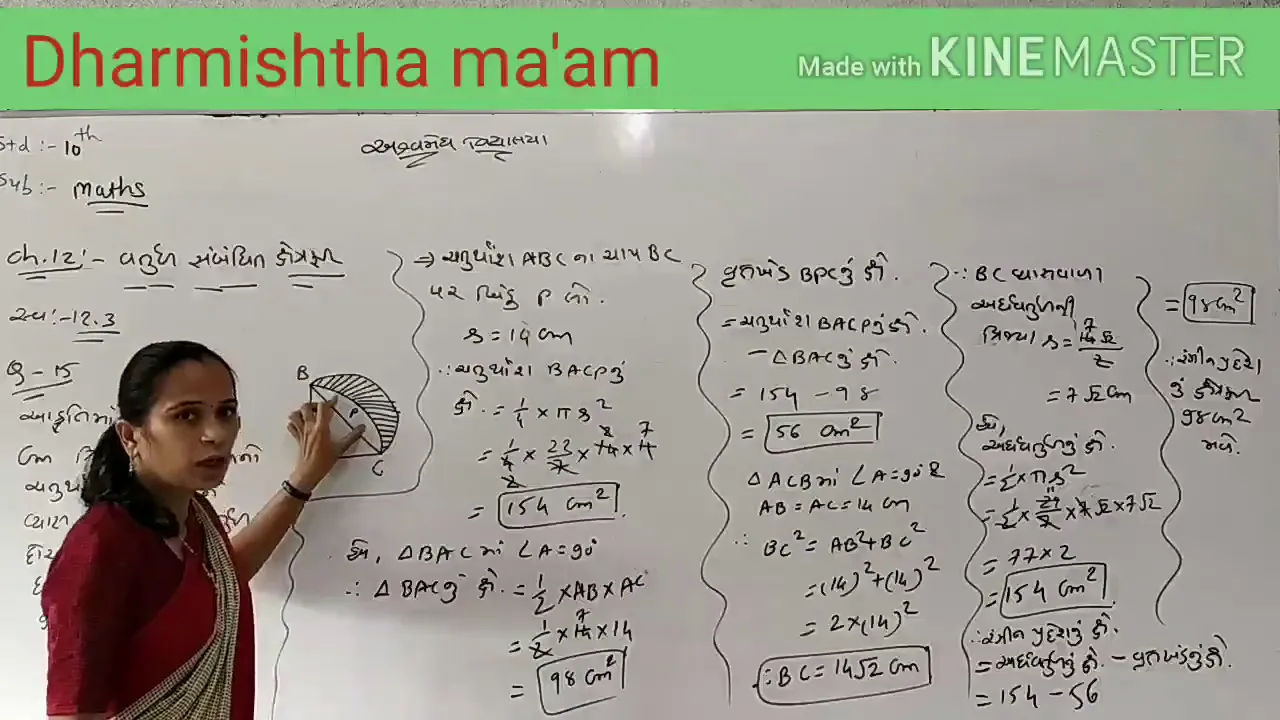 Dharmishtha ma'am
Made with KINEMASTER
Std :- 10th
Sub :- Maths
Ch.12 :- વર્તુળ સંબંધિત ક્ષેત્રફળ
સ્વા :- 12.3
Q - 15
આકૃતિમાં
cm
B
P
C
⇒ ચતુર્થાંશ ABC ના ચાપ BC
પર બિંદુ P લો.
r = 14 cm
∴ ચતુર્થાંશ BACP નું
ક્ષે. = 1/4 × π r²
= 1/4 × 22/7 × 14 × 14
= 154 cm²
હવે, △BAC માં ∠A = 90°
∴ △BAC નું ક્ષે. = 1/2 × AB × AC
= 1/2 × 14 × 14
= 98 cm²
વૃતખંડ BPC નું ક્ષે.
= ચતુર્થાંશ BACP નું ક્ષે.
- △BAC નું ક્ષે.
= 154 - 98
= 56 cm²
△ACB માં ∠A = 90°
AB = AC = 14 cm
∴ BC² = AB² + BC²
= (14)² + (14)²
= 2 × (14)²
∴ BC = 14√2 cm
∴ BC વ્યાસવાળા
અર્ધવર્તુળની
ત્રિજ્યા r = 14√2/2
= 7√2 cm
હવે,
અર્ધવર્તુળનું ક્ષે.
= 1/2 × π r²
= 1/2 × 22/7 × 7√2 × 7√2
= 77 × 2
= 154 cm²
∴ રંગીન પ્રદેશનું ક્ષે.
= અર્ધવર્તુળનું ક્ષે. - વૃતખંડનું ક્ષે.
= 154 - 56
= 98 cm²
∴ રંગીન પ્રદેશ
નું ક્ષેત્રફળ
98 cm²
મળે.